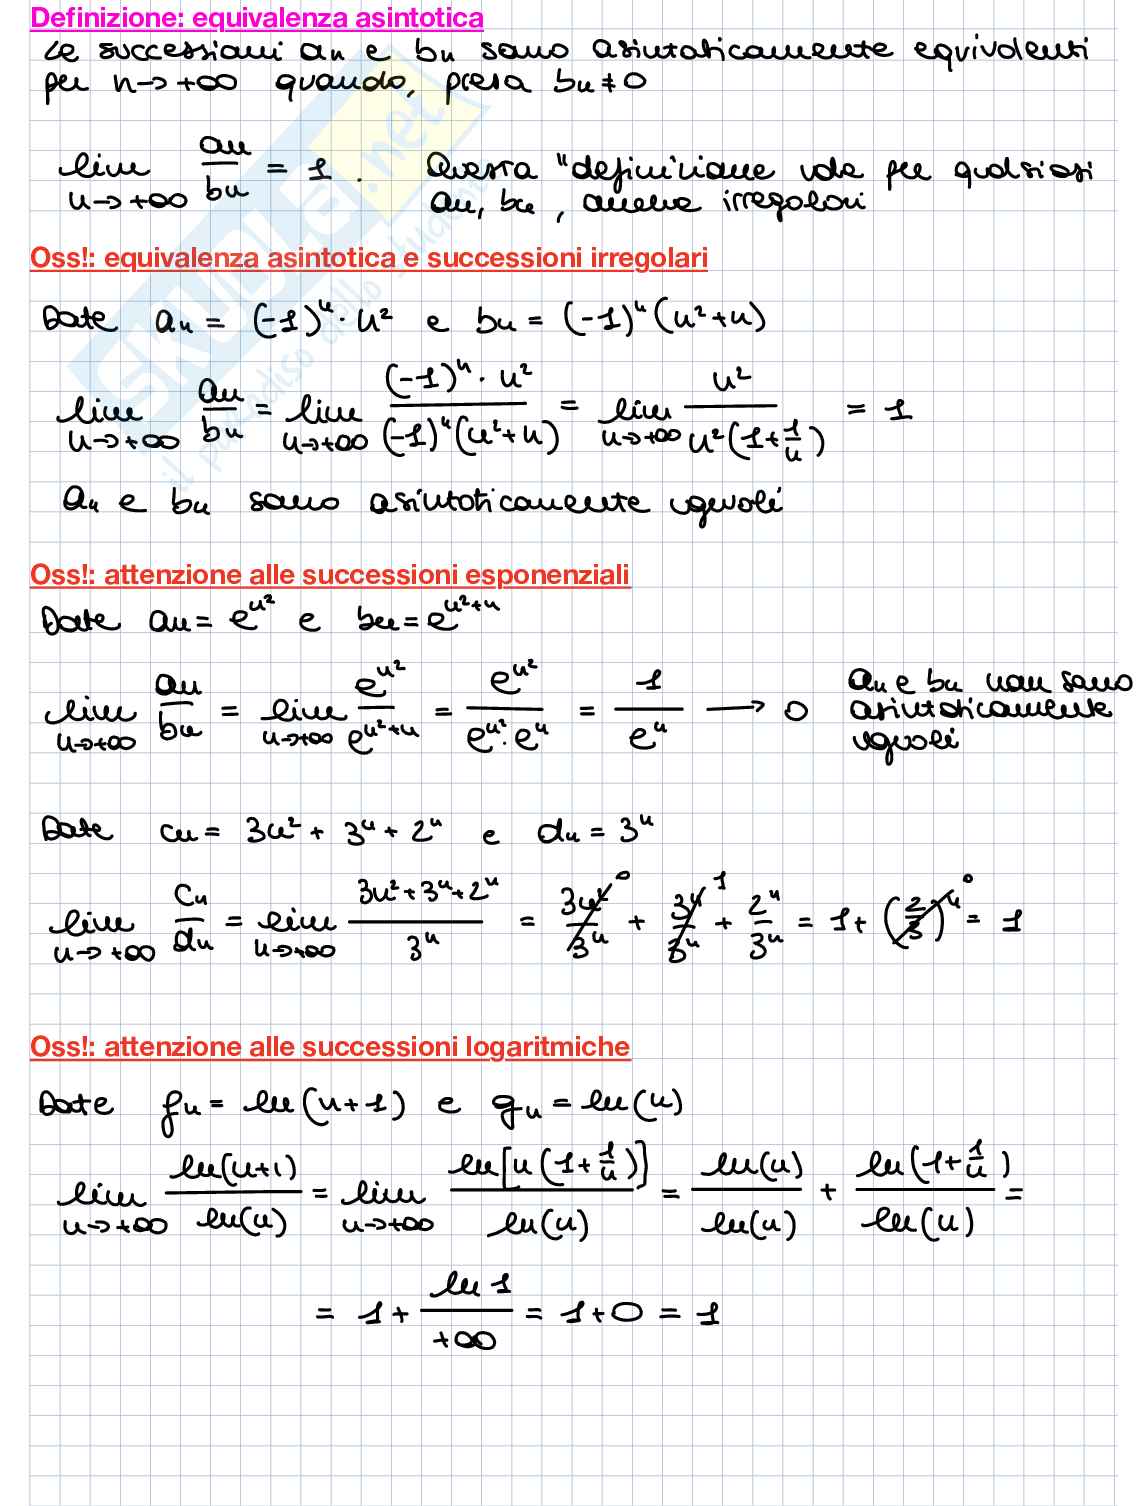 Definizione: equivalenza asintotica
Le successioni aₙ e bₙ sono asintoticamente equivalenti
per n→+∞ quando, presa bₙ ≠ 0
lim n→+∞ aₙ/bₙ = 1. Questa "definizione vale per qualsiasi
aₙ, bₙ, anche irregolari
Oss!: equivalenza asintotica e successioni irregolari
Date aₙ = (-1)ⁿ · n² e bₙ = (-1)ⁿ(n²+n)
lim n→+∞ aₙ/bₙ = lim n→+∞ (-1)ⁿ · n² / (-1)ⁿ(n²+n) = lim n→+∞ n² / n²(1+1/n) = 1
aₙ e bₙ sono asintoticamente uguali
Oss!: attenzione alle successioni esponenziali
Date aₙ = e^(n²) e bₙ = e^(n²+n)
lim n→+∞ aₙ/bₙ = lim n→+∞ e^(n²) / e^(n²+n) = e^(n²) / e^(n²)·eⁿ = 1/eⁿ → 0 aₙ e bₙ non sono
asintoticamente
uguali
Date cₙ = 3n² + 3ⁿ + 2ⁿ e dₙ = 3ⁿ
lim n→+∞ cₙ/dₙ = lim n→+∞ (3n²+3ⁿ+2ⁿ) / 3ⁿ = 3n²/3ⁿ 0 + 3ⁿ/3ⁿ 1 + 2ⁿ/3ⁿ = 1 + (2/3)ⁿ 0 = 1
Oss!: attenzione alle successioni logaritmiche
Date fₙ = ln(n+1) e gₙ = ln(n)
lim n→+∞ ln(n+1) / ln(n) = lim n→+∞ ln[n(1+1/n)] / ln(n) = ln(n)/ln(n) + ln(1+1/n) / ln(n) =
= 1 + ln 1 / +∞ = 1+0 = 1
SKUOLA.net
il paradiso dello studente